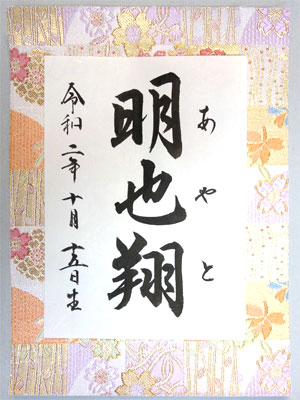 あやと
明也翔
令和二年十月十五日生